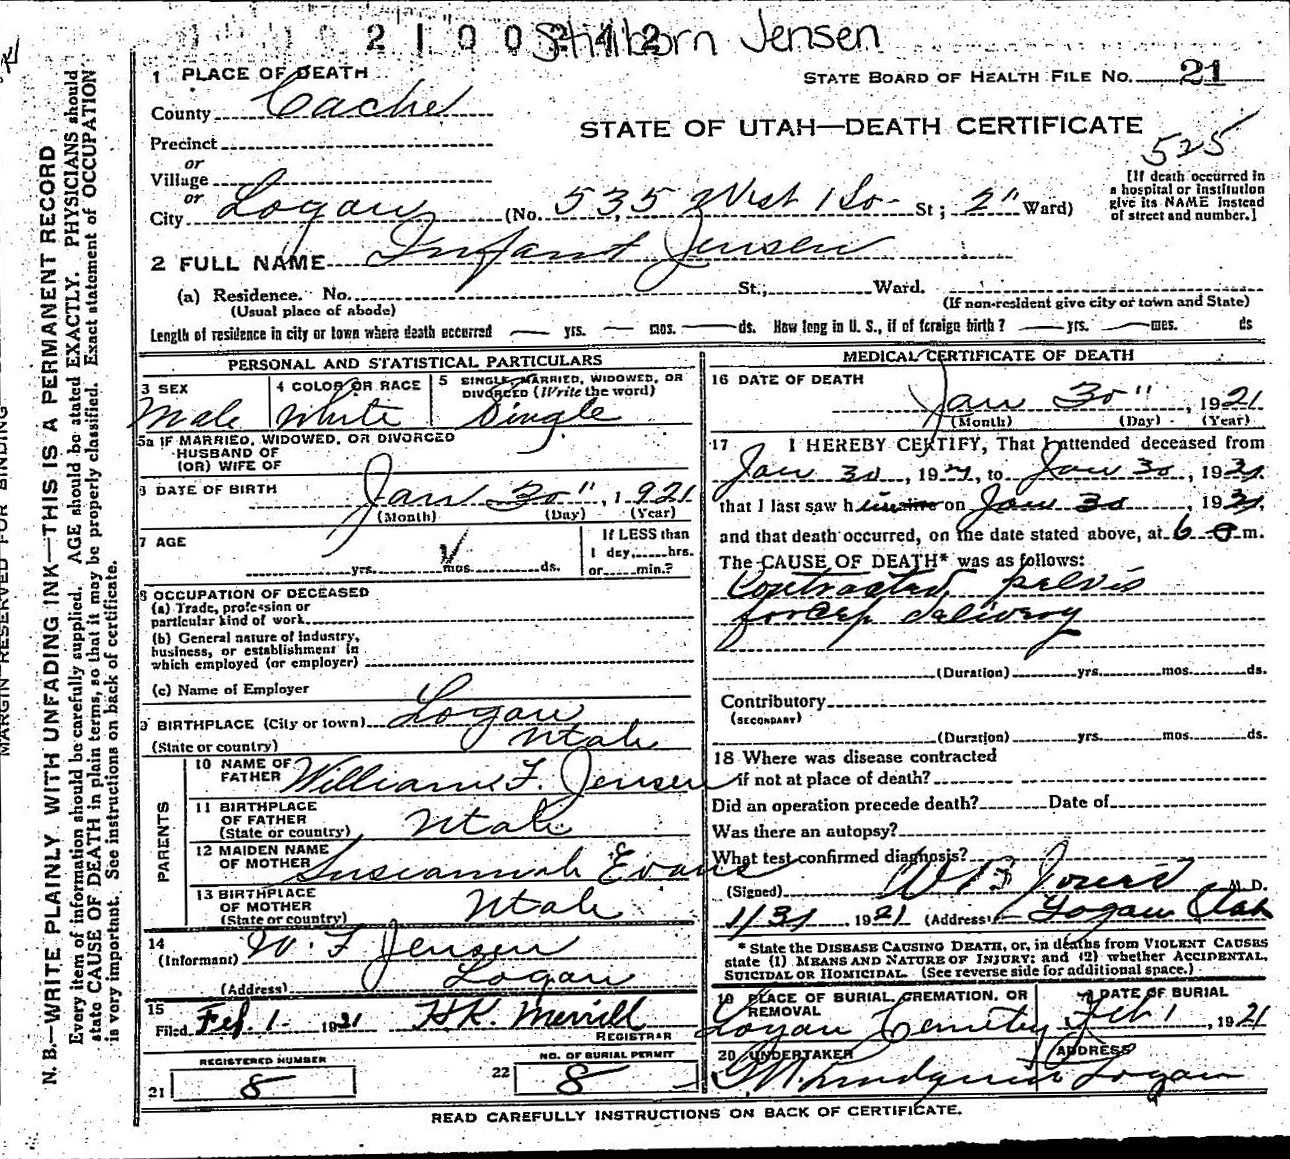 2100242
Stillborn Jensen
1 PLACE OF DEATH
STATE BOARD OF HEALTH FILE No. 21
County Cache
STATE OF UTAH—DEATH CERTIFICATE
525
Precinct
or
Village
or
City Logan (No. 535 West 1 So- St; 2" Ward)
[If death occurred in
a hospital or institution
give its NAME instead
of street and number.]
2 FULL NAME Infant Jensen
(a) Residence. No. St.; Ward.
(Usual place of abode)
(If non-resident give city or town and State)
Length of residence in city or town where death occurred — yrs. — mos. — ds. How long in U. S., if of foreign birth? — yrs. — mos. ds
PERSONAL AND STATISTICAL PARTICULARS
3 SEX
Male
4 COLOR OR RACE
White
5 SINGLE, MARRIED, WIDOWED, OR
DIVORCED (Write the word)
Single
5a IF MARRIED, WIDOWED, OR DIVORCED
HUSBAND OF
(OR) WIFE OF
6 DATE OF BIRTH Jan 30", 1921
(Month) (Day) (Year)
7 AGE
yrs. mos. ds.
If LESS than
1 day, hrs.
or min.?
8 OCCUPATION OF DECEASED
(a) Trade, profession or
particular kind of work
(b) General nature of industry,
business, or establishment in
which employed (or employer)
(c) Name of Employer
9 BIRTHPLACE (City or town) Logan
(State or country) Utah
PARENTS
10 NAME OF
FATHER William F. Jensen
11 BIRTHPLACE
OF FATHER
(State or country) Utah
12 MAIDEN NAME
OF MOTHER Suseannah E Evans
13 BIRTHPLACE
OF MOTHER
(State or country) Utah
14
(Informant) W. F Jensen
(Address) Logan
15
Filed Feb 1- 1921 H.K. Merrill
REGISTRAR
REGISTERED NUMBER
21 8
NO. OF BURIAL PERMIT
22 8
MEDICAL CERTIFICATE OF DEATH
16 DATE OF DEATH
Jan 30", 1921
(Month) (Day) (Year)
17 I HEREBY CERTIFY, That I attended deceased from
Jan 30, 1921, to Jan 30, 1921.
that I last saw h on Jan 30, 1921,
and that death occurred, on the date stated above, at 6 m.
The CAUSE OF DEATH* was as follows:
Contracted pelvis
forcep delivery
(Duration) yrs. mos. ds.
Contributory
(SECONDARY)
(Duration) yrs. mos. ds.
18 Where was disease contracted
if not at place of death?
Did an operation precede death? Date of
Was there an autopsy?
What test confirmed diagnosis?
(Signed) M. D.
1/31, 1921 (Address) Logan Utah
* State the DISEASE CAUSING DEATH, or, in deaths from VIOLENT CAUSES
state (1) MEANS AND NATURE OF INJURY; and (2) whether ACCIDENTAL,
SUICIDAL OR HOMICIDAL. (See reverse side for additional space.)
19 PLACE OF BURIAL, CREMATION, OR
REMOVAL
Logan Cemetery
DATE OF BURIAL
Feb 1, 1921
20 UNDERTAKER
ADDRESS
Logan
READ CAREFULLY INSTRUCTIONS ON BACK OF CERTIFICATE.
MARGIN RESERVED FOR BINDING
N. B.—WRITE PLAINLY WITH UNFADING INK—THIS IS A PERMANENT RECORD
Every item of information should be carefully supplied. AGE should be stated EXACTLY. PHYSICIANS should
state CAUSE OF DEATH in plain terms, so that it may be properly classified. Exact statement of OCCUPATION
is very important. See instructions on back of certificate.